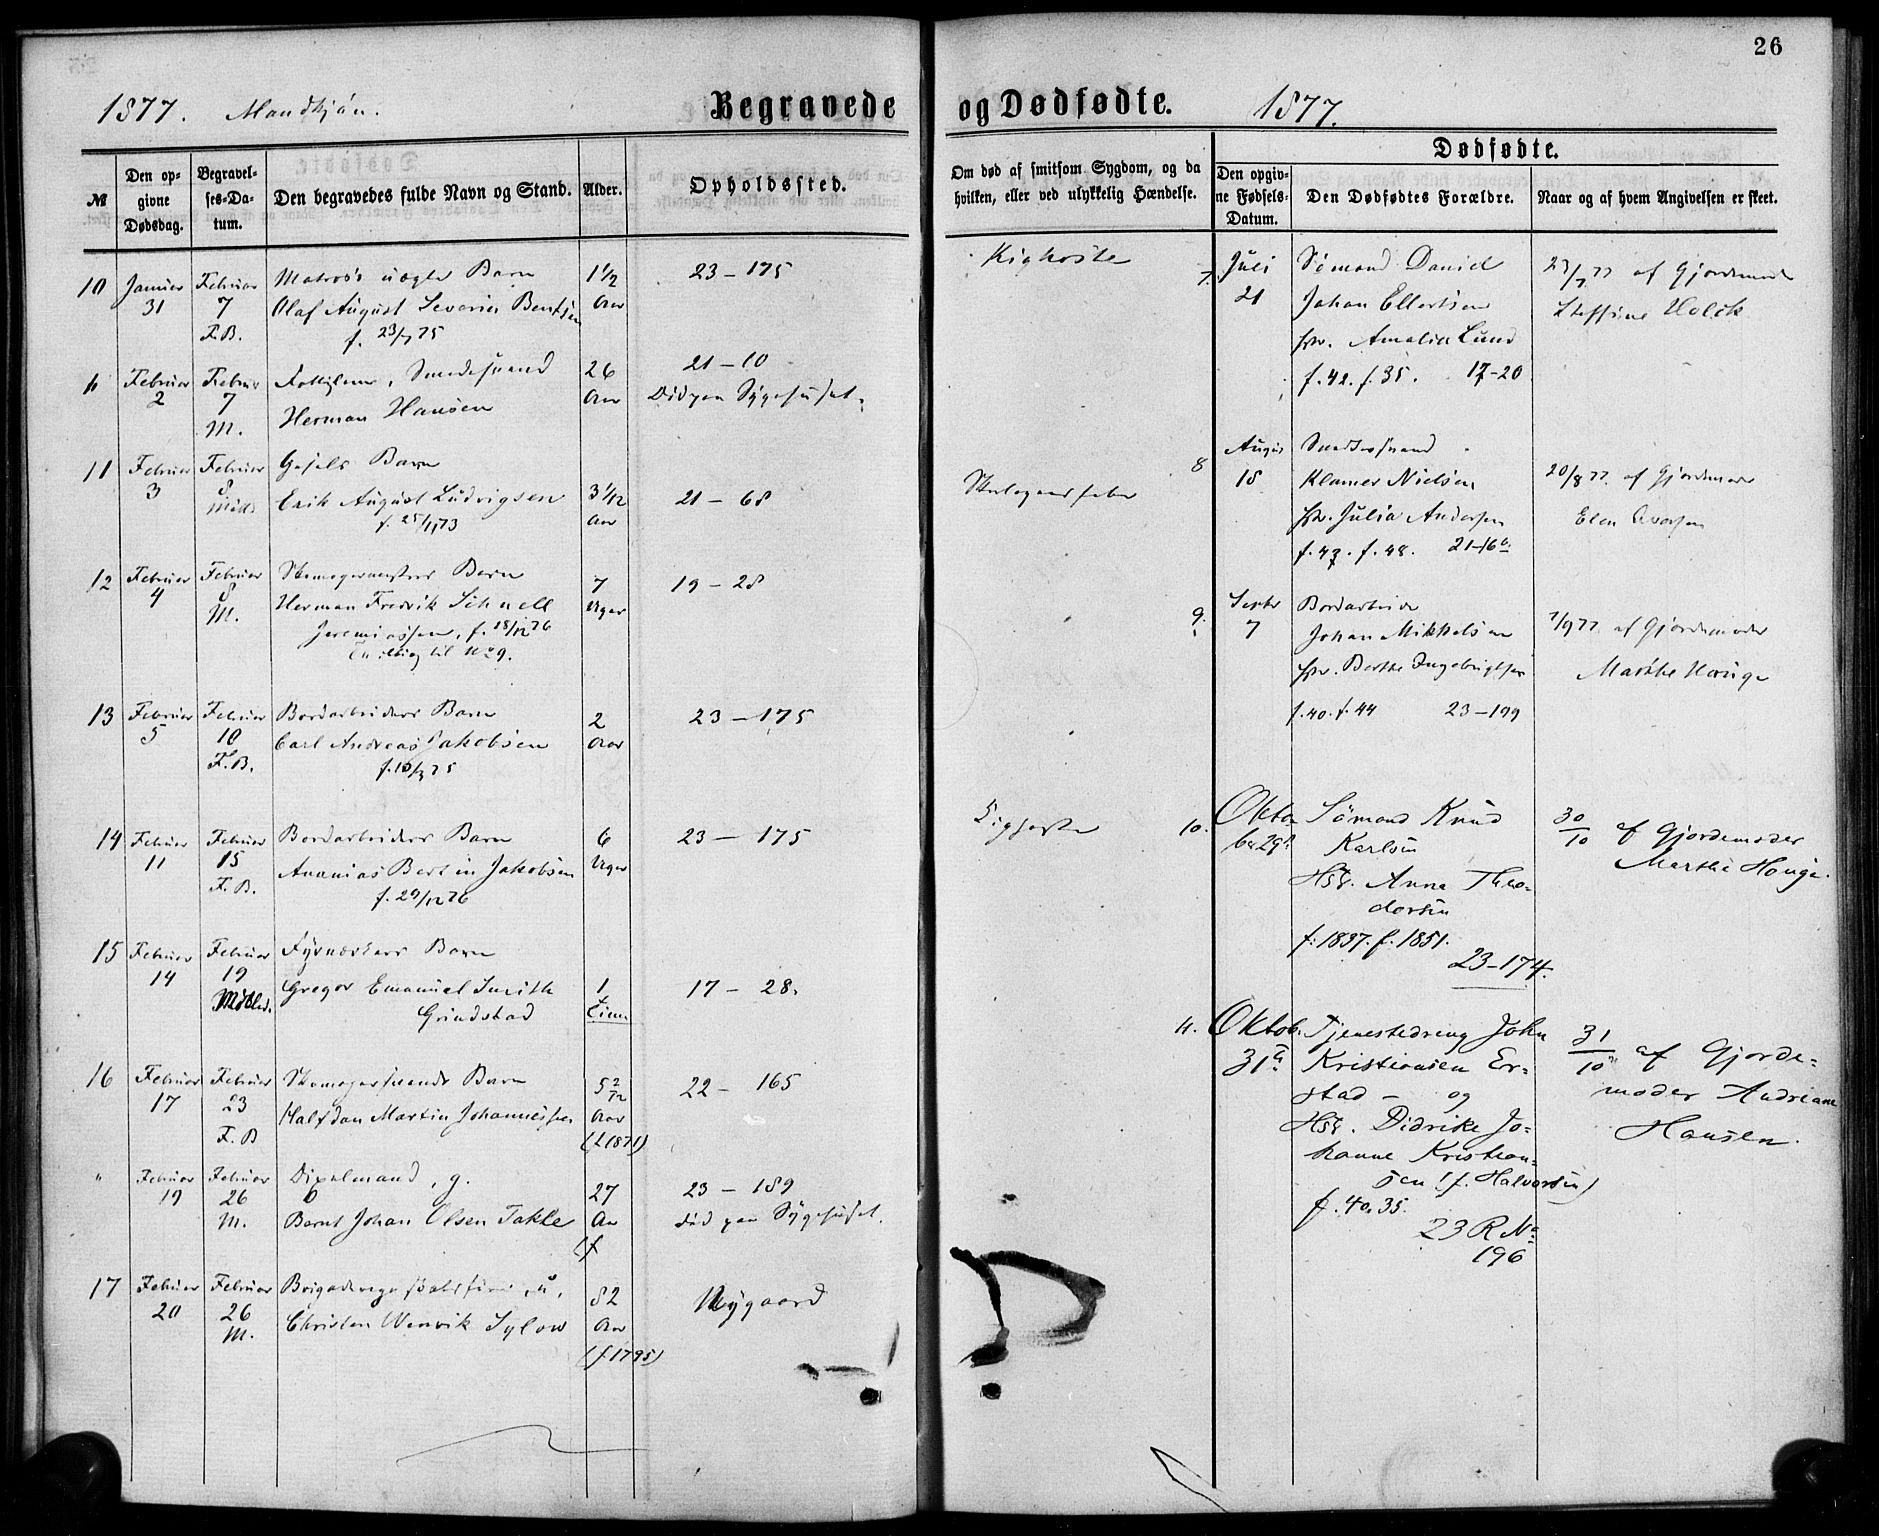 26
1877. Mandkjön. Begravede
og Dødfødte. 1877.
№
Den opgivne Dødsdag.
Begravelses-Datum.
Den begravedes fulde Navn og Stand.
Alder.
Opholdssted.
Om død af smitsom Sygdom, og da hvilken, eller ved ulykkelig Hændelse.
Dødfødte.
Den opgivne Fødsels-Datum.
Den Dødfødtes Forældre.
Naar og af hvem Angivelsen er skeet.
10 Januar Februar Matros's uægte Barn 1 1/2 23 – 175 Kighoste
31 7 Olaf August Severin Bentsen Aar
F.B. f. 23/7 75
" Februar Februar Smedesvend 26 21 – 10
2 7 Herman Hansen Aar Död paa Sygehuset.
M.
11 Februar Februar Gesels Barn
3 8 Erik August Ludvigsen 3 1/12 21 – 68
Midd f. 25/11 73 Aar
12 Februar Februar Skomagermester Barn 7 19 – 28
4 8 Herman Fredrik Schnell Uger
M. Jeremiassen, f. 18/12 76
Tvilling til No 9.
13 Februar Februar Bordarbeiders Barn 2 23 – 175
5 10 Carl Andreas Jakobsen Aar
F.B. f. 10/3 75
14 Februar Februar Bordarbeiders Barn 6 23 – 175
11 15 Ananias Bertin Jakobsen Uger
F.B. f. 29/12 76
15 Februar Februar Barn
14 19 Gregor Emanuel Smith 1 17 – 28.
Middled. Grindstad Time
16 Februar Februar Skomagersvends Barn 5 2/12 22 – 165
17 23 Halfdan Martin Johannessen Aar
F.B (f 1871)
" Februar Februar g. 27 23 – 189
19 26 Bernt Johan Olsen Takle Aar död paa Sygehuset.
M. (f
17 Februar Februar u. 82 Nygaard
20 26 Christen Wenvik Sylow Aar
M. (f 1795)
7. Juli Sömand Daniel 23/7 77 af Gjordemoder
21 Johan Ellertsen Steffine Holck
Hst. Amalia Lund
f. 42. f. 35. 17-20
8 August Smedesvend
18 Klamer Nielsen 20/8 77. af Gjordemoder
Hst. Julia Andersen Elen Iversen
f. 47. f. 48. 21-16 b.
9. Septbr Bordarbeider
7 Johan Mikkelsen 7/9 77. af Gjordemoder
Hst. Berthe Ingebrigtsen Marthe Hauge
f. 40. f. 44 23-199
10. Okto- Sömand Knud 30/10 af Gjordemoder
ber 29de Karlsen Marthe Hauge.
Hst. Anna Theo-
dorsen
f. 1837. f. 1851.
23-174.
11. Oktob. Tjenestedreng John 31/10 af Gjorde-
31te Kristiansen Er- moder Andriane
stad – og Hansen.
Hst. Didrike Jo-
hanne Kristian-
sen (f. Halvorsen)
f. 40. 35.
23 R No
196